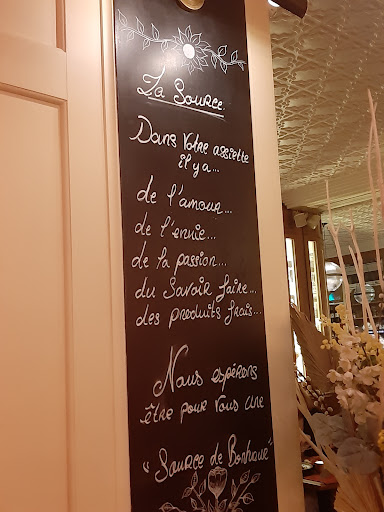 La Source.
Dans Votre assiette
il y a...
de l'amour...
de l'envie...
de la passion...
du Savoir faire...
des produits frais...
Nous espérons
être pour vous une
"Source de Bonheur"